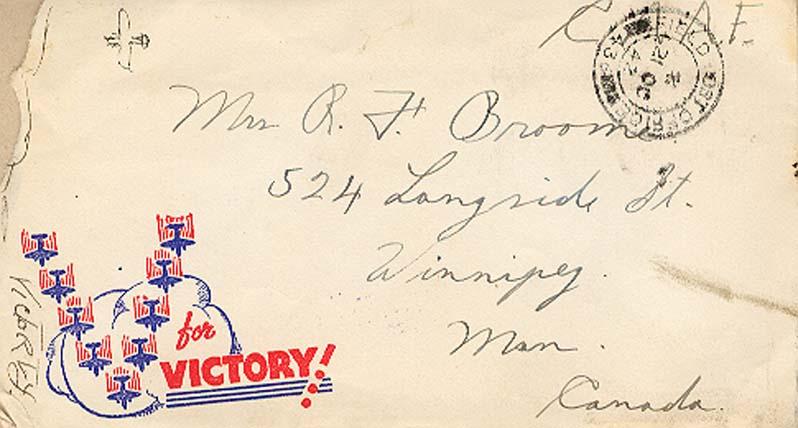 C. A. F.
FIELD POST OFFICE
Mrs R. F. Broom
524 Langside St.
Winnipeg.
Man.
Canada.
for
VICTORY!